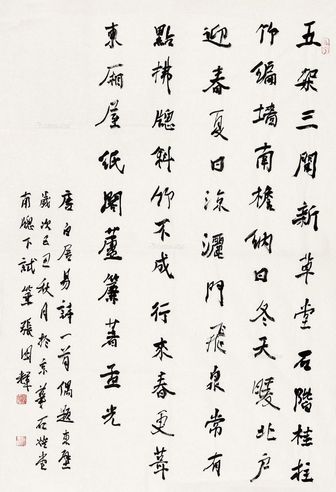 五架三間新草堂石階桂柱
竹編墻南檐納日冬天暖北户
迎春夏日涼灑門飛泉常有
點拂牕斜竹不成行來春更葺
東廂屋紙閣蘆簾著孟光
唐白居易詩一首偶題東壁
歲次己丑秋月於京華石堂
南牕下試筆張